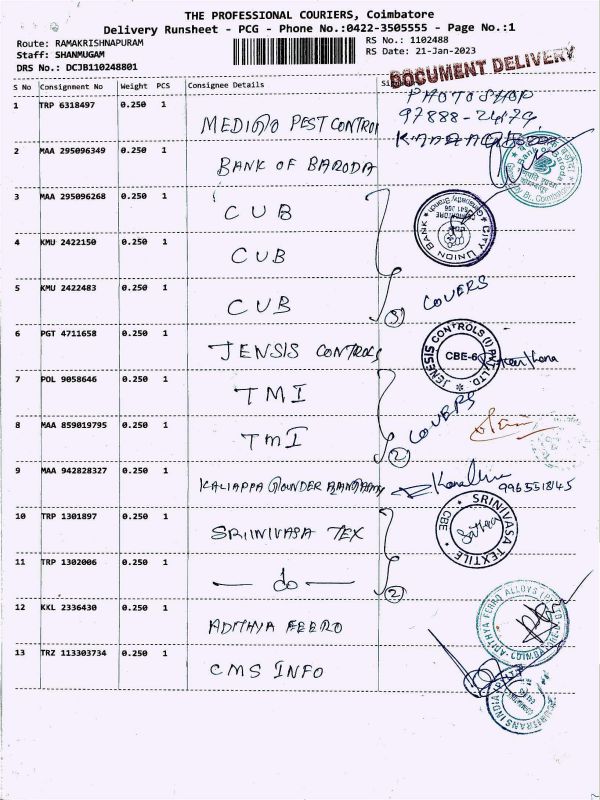 THE PROFESSIONAL COURIERS, Coimbatore
Delivery Runsheet - PCG - Phone No.:0422-3505555 - Page No.:1
Route: RAMAKRISHNAPURAM
RS No.: 1102488
Staff: SHANMUGAM
RS Date: 21-Jan-2023
DRS No.: DCJB110248801
DOCUMENT DELIVERY
S No Consignment No Weight PCS Consignee Details
PHOTO SHOP
97888-21479
1 TRP 6318497 0.250 1 MEDIGO PEST CONTROL
2 MAA 295096349 0.250 1 BANK OF BARODA
Bank of Baroda
3 MAA 295096268 0.250 1 CUB
CITY UNION BANK
4 KMU 2422150 0.250 1 CUB
5 KMU 2422483 0.250 1 CUB
3 COVERS
6 PGT 4711658 0.250 1 JENSIS CONTROLS
JENESIS CONTROLS (I) PVT. LTD.
CBE-6
7 POL 9058646 0.250 1 TMI
8 MAA 859019795 0.250 1 TMI
2 COVERS
9 MAA 942828327 0.250 1 KALIAPPA GOUNDER
9965518145
10 TRP 1301897 0.250 1 SRIINIVASA TEX
SRINIVASA TEXTILE
CBE
11 TRP 1302006 0.250 1 — do —
2
12 KKL 2336430 0.250 1 ADITHYA FEERO
ADITHYA FERRO ALLOYS (P) LTD
13 TRZ 113303734 0.250 1 CMS INFO